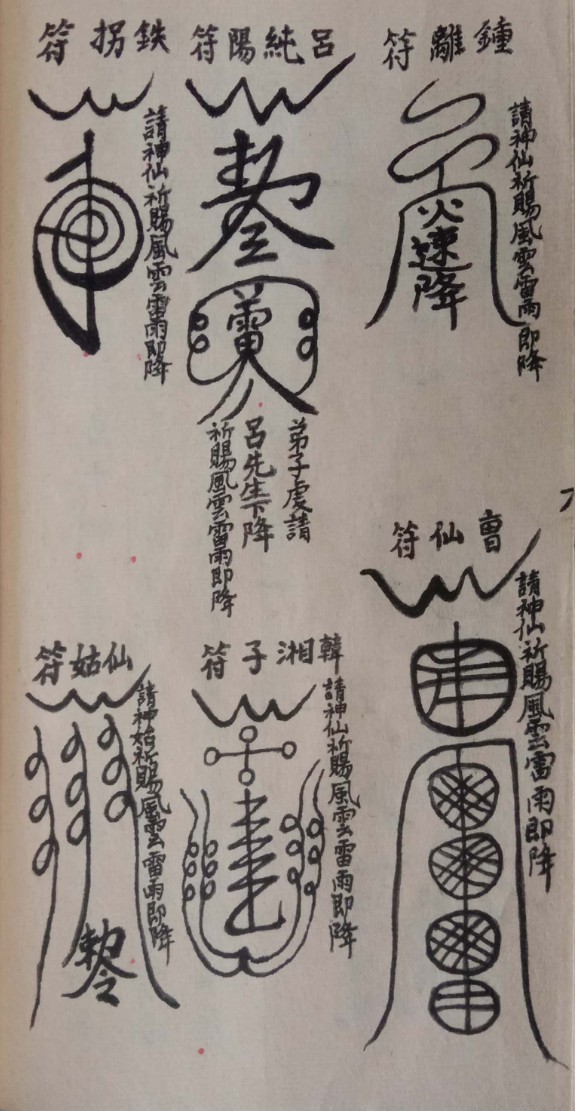 鍾離符
請神仙祈賜風雲雷雨即降
火速降
呂純陽符
敕令
雷
弟子虔請
呂先生下降
祈賜風雲雷雨即降
鉄拐符
請神仙祈賜風雲雷雨即降
曹仙符
請神仙祈賜風雲雷雨即降
韓湘子符
請神仙祈賜風雲雷雨即降
仙姑符
請神姑祈賜風雲雷雨即降
敕令